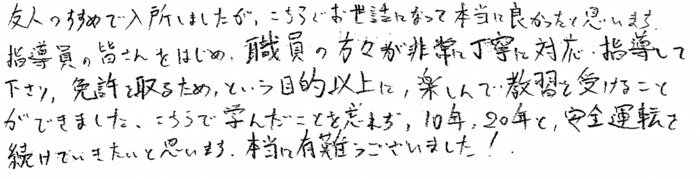 友人のすすめで入所しましたが、こちらでお世話になって本当に良かったと思います。
指導員の皆さんをはじめ、職員の方々が非常に丁寧に対応・指導して
下さり、免許を取るため、という目的以上に、楽しんで教習を受けること
ができました、こちらで学んだことを忘れず、10年、20年と、安全運転を
続けていきたいと思います。本当に有難うございました！